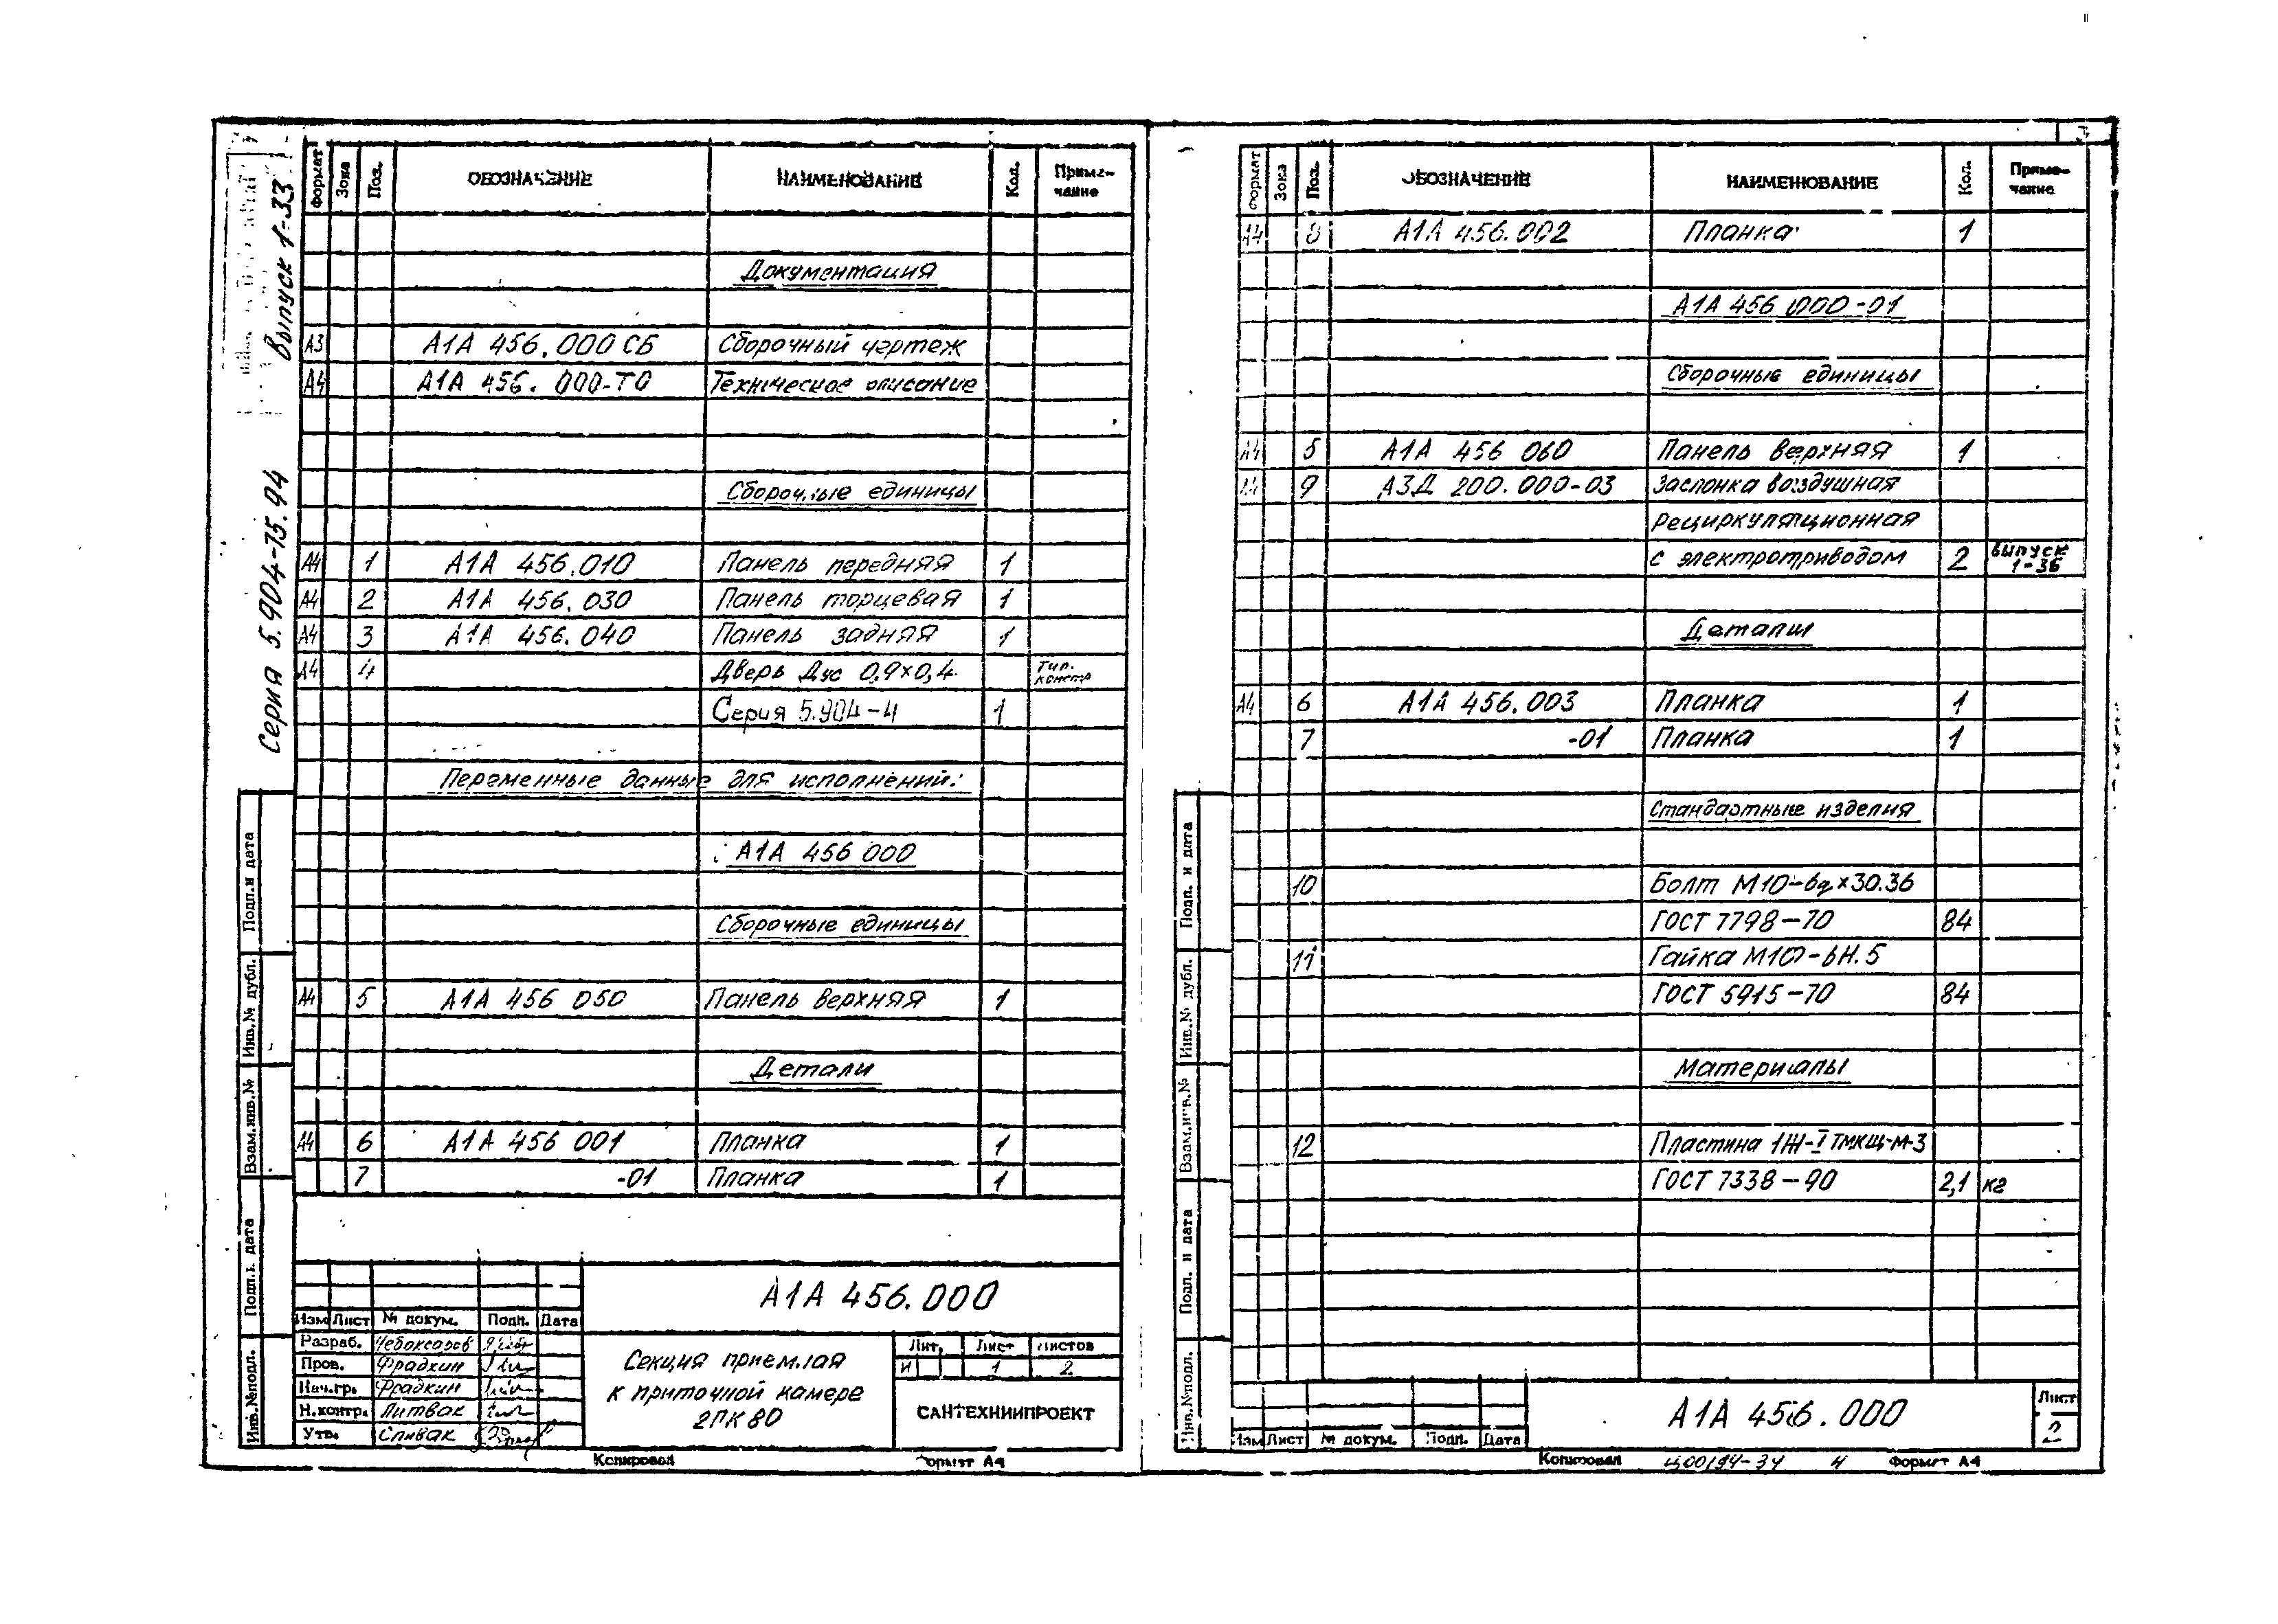 Серия 5.904-75.94 Выпуск 1-33
Формат Зона Поз. ОБОЗНАЧЕНИЕ НАИМЕНОВАНИЕ Кол. Примечание
Документация
А3 А1А 456.000 СБ Сборочный чертеж
А4 А1А 456.000-ТО Техническое описание
Сборочные единицы
А4 1 А1А 456.010 Панель передняя 1
А4 2 А1А 456.030 Панель торцевая 1
А4 3 А1А 456.040 Панель задняя 1
А4 4 Дверь Дус 0,9×0,4 Тип. констр
Серия 5.904-4 1
Переменные данные для исполнений:
А1А 456 000
Сборочные единицы
А4 5 А1А 456 050 Панель верхняя 1
Детали
А4 6 А1А 456 001 Планка 1
7 -01 Планка 1
Подп. и дата
Инв.№ дубл.
Взам.инв.№
Подп. и дата
Инв.№подл.
А1А 456.000
Изм Лист № докум. Подп. Дата
Разраб. Чебоксаров
Пров. Фрадкин
Нач.гр. Фрадкин
Н.контр. Литвак
Утв. Спивак
Секция приемная
к приточной камере
2ПК80
Лит. Лист Листов
И 1 2
САНТЕХНИИПРОЕКТ
Копировал Формат А4
3
Формат Зона Поз. ОБОЗНАЧЕНИЕ НАИМЕНОВАНИЕ Кол. Примечание
А4 8 А1А 456.002 Планка 1
А1А 456 000-01
Сборочные единицы
А4 5 А1А 456 060 Панель верхняя 1
А4 9 А3Д 200.000-03 Заслонка воздушная
рециркуляционная
с электроприводом 2 выпуск 1-36
Детали
А4 6 А1А 456.003 Планка 1
7 -01 Планка 1
Стандартные изделия
10 Болт М10-6g×30.36
ГОСТ 7798-70 84
11 Гайка М10-6Н.5
ГОСТ 5915-70 84
Материалы
12 Пластина 1Ж-I ТМКЩ-М-3
ГОСТ 7338-90 2,1 кг
Подп. и дата
Инв.№ дубл.
Взам.инв.№
Подп. и дата
Инв.№подл.
Изм Лист № докум. Подп. Дата
А1А 456.000
Лист
2
Копировал Ц00194-34 4 Формат А4